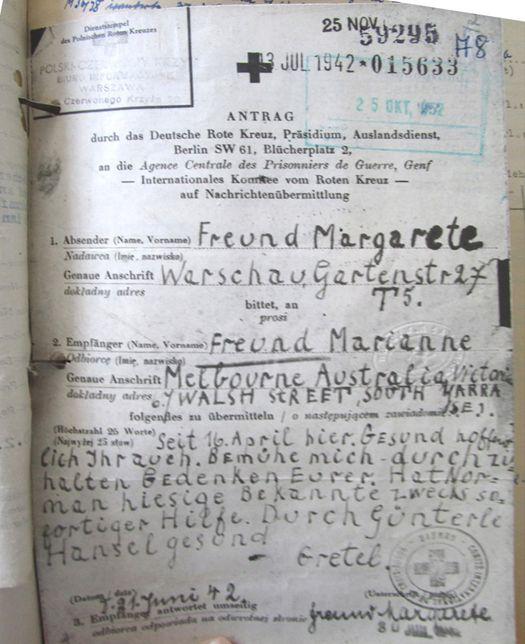 Dienststempel
des Polnischen Roten Kreuzes
POLSKI CZERWONY KRZYŻ
BIURO INFORMACYJNE
WARSZAWA
Czerwonego Krzyża 20
25 NOV.
59295
A8
3 JUL 1942 * 015633
25 OKT.
ANTRAG
durch das Deutsche Rote Kreuz, Präsidium, Auslandsdienst,
Berlin SW 61, Blücherplatz 2,
an die Agence Centrale des Prisonniers de Guerre, Genf
— Internationales Komitee vom Roten Kreuz —
auf Nachrichtenübermittlung
1. Absender (Name, Vorname) Freund Margarete
Nadawca (Imię, nazwisko)
Genaue Anschrift Warschau, Gartenstr 27
dokładny adres T 5.
bittet, an
prosi
2. Empfänger (Name, Vorname) Freund Marianne
Odbiorcę (Imię, nazwisko)
Genaue Anschrift Melbourne Australia Victoria
dokładny adres WALSH STREET, SOUTH YARRA
folgendes zu übermitteln / o następującem zawiadomić
(Höchstzahl 25 Worte)
(Najwyżej 25 słów) Seit 16. April hier. Gesund hoffent-
lich Ihr auch. Bemühe mich durchzu
halten Gedenken Eurer. Hat Nor-
man hiesige Bekannte zwecks so-
fortiger Hilfe. Durch Günterle
Hansel gesund
- Gretel.
(Datum / data) 21. Juni 42.
3. Empfänger antwortet umseitig
odbiorca odpowiada na odwrotnej stronie
Freund Margarete